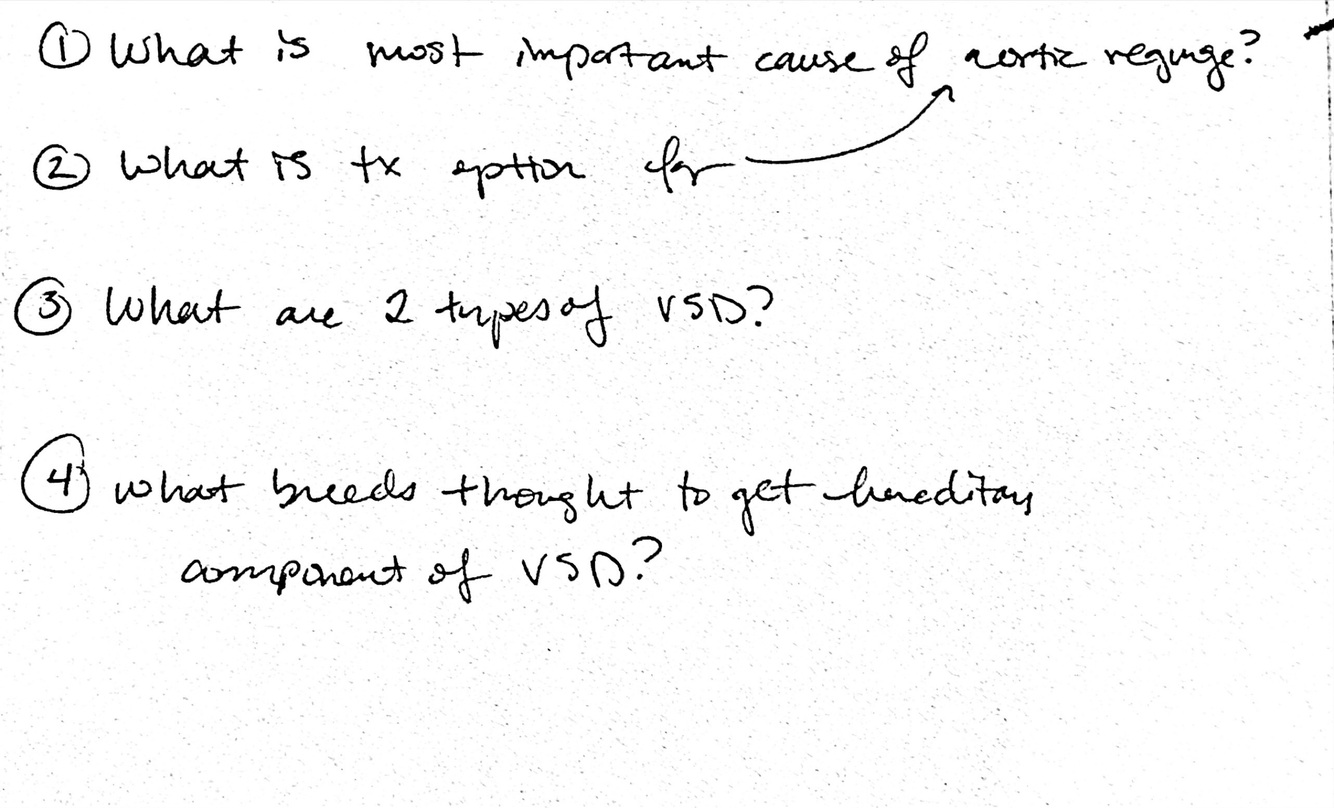 ① What is most important cause of aortic regurge?
② What is tx option for
③ What are 2 types of VSD?
④ what breeds thought to get hereditary
component of VSD?